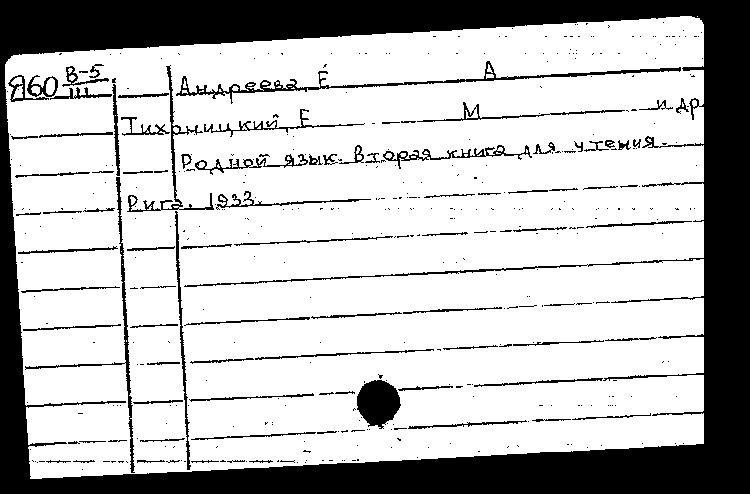 Я60 В-5
III
Андреева, Е А
Тихоницкий, Е М и др
Родной язык. Вторая книга для чтения.
Рига. 1933.